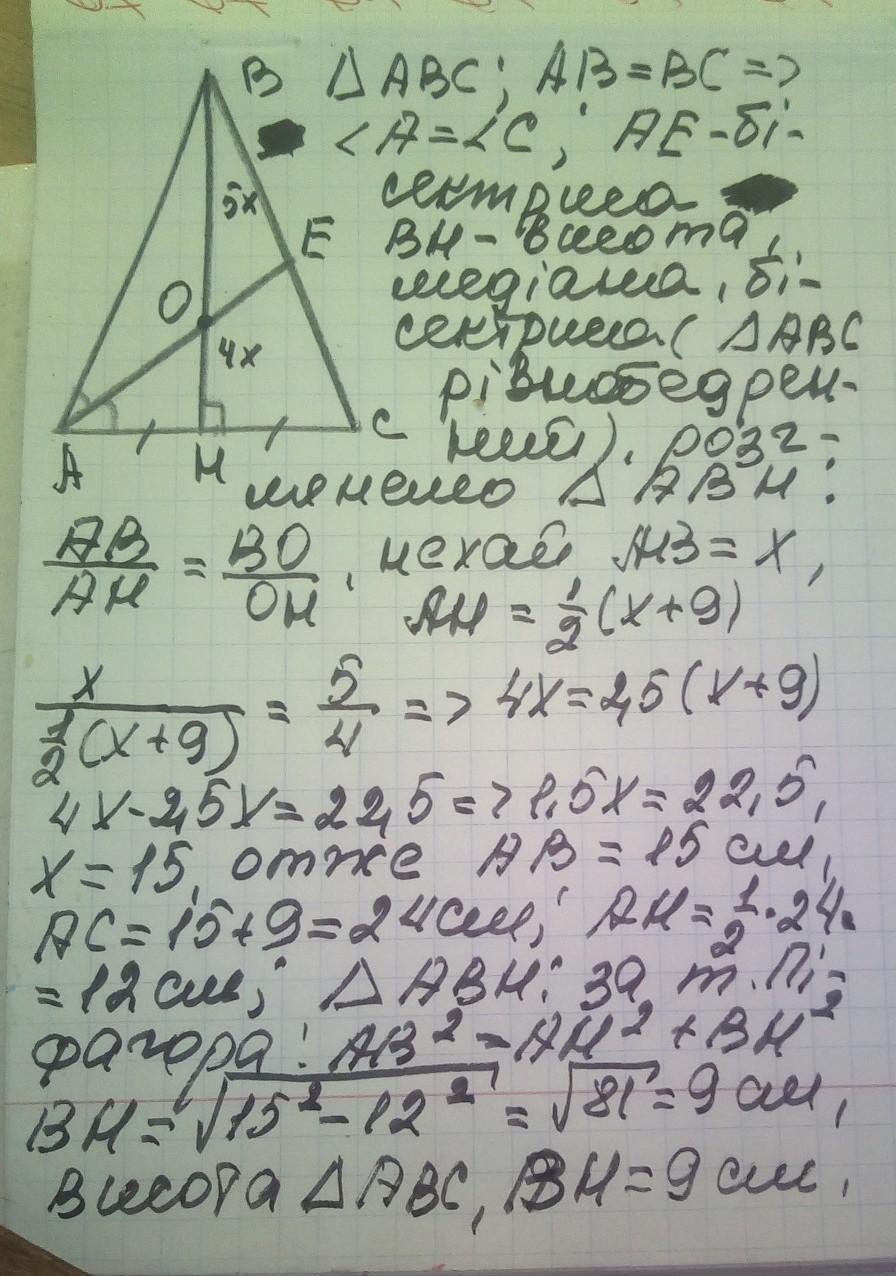 B
5x
E
O
4x
A
H
C
Δ ABC; AB = BC =>
<A = <C; AE - бі-
сектриса
BH - висота,
медіана, бі-
сектриса ( Δ ABC
рівнобедрен-
ний). розг-
лянемо Δ ABH:
AB/AH = BO/OH. нехай AB = x,
AH = 1/2 (x+9)
x / 1/2 (x+9) = 5/4 => 4x = 2,5 (x+9)
4x - 2,5x = 22,5 => 1,5x = 22,5,
x = 15, отже AB = 15 см,
AC = 15 + 9 = 24 см; AH = 1/2 · 24 =
= 12 см; Δ ABH: за т. Пі-
фагора: AB² = AH² + BH²
BH = √15² - 12² = √81 = 9 см,
висота Δ ABC, BH = 9 см.